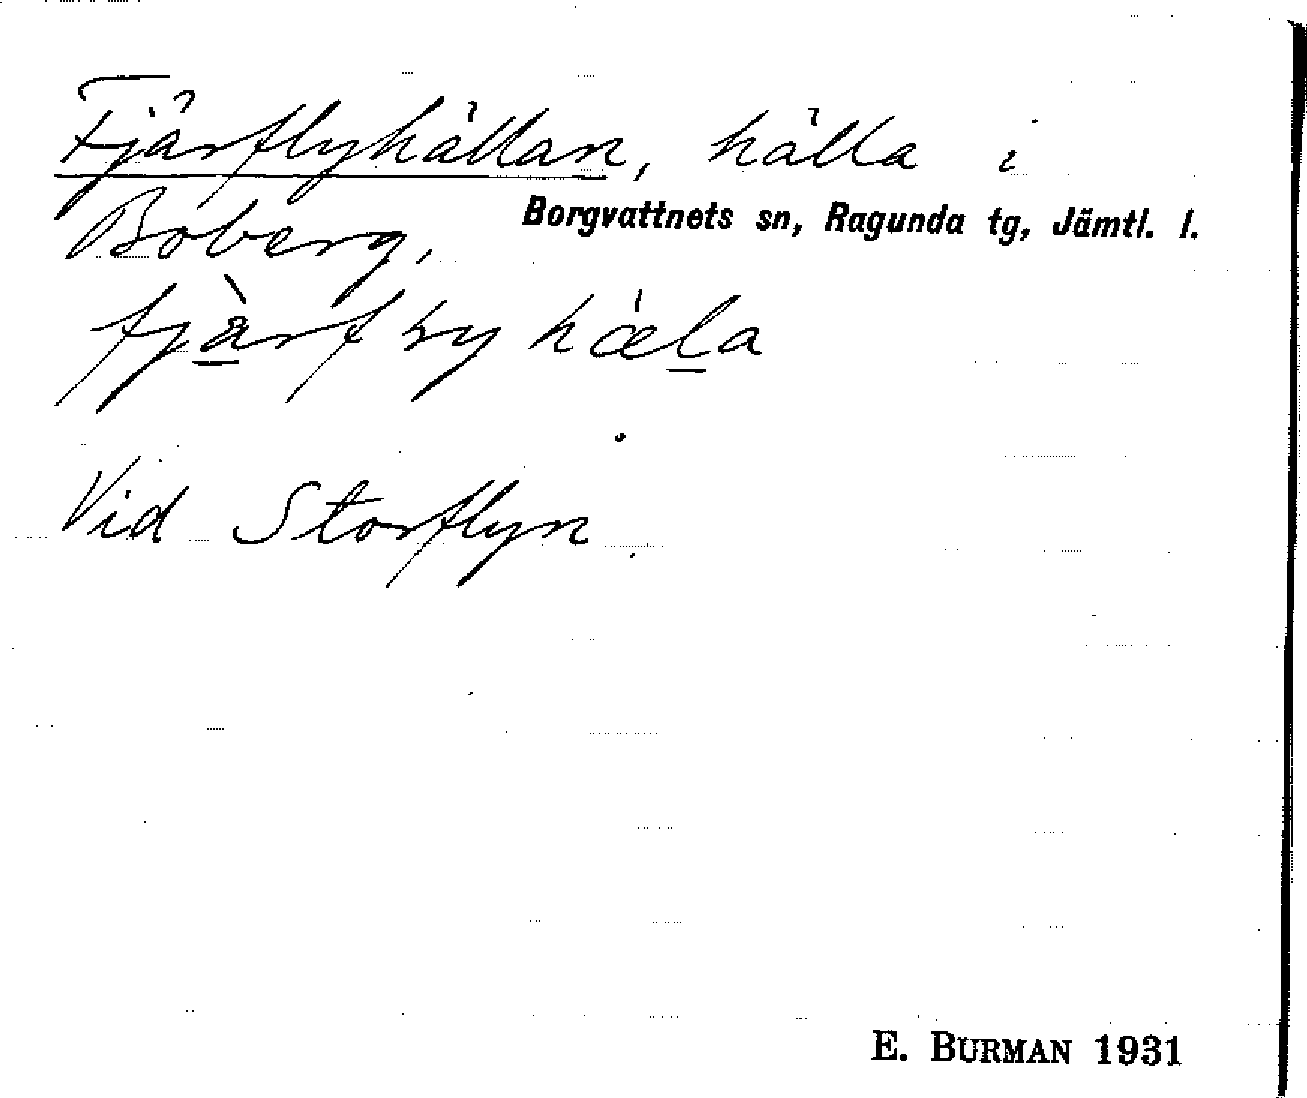 Fjärflyhällan, hälla i
Boberg, Borgvattnets sn, Ragunda tg, Jämtl. l.
Vid Storflyn.
E. BURMAN 1931